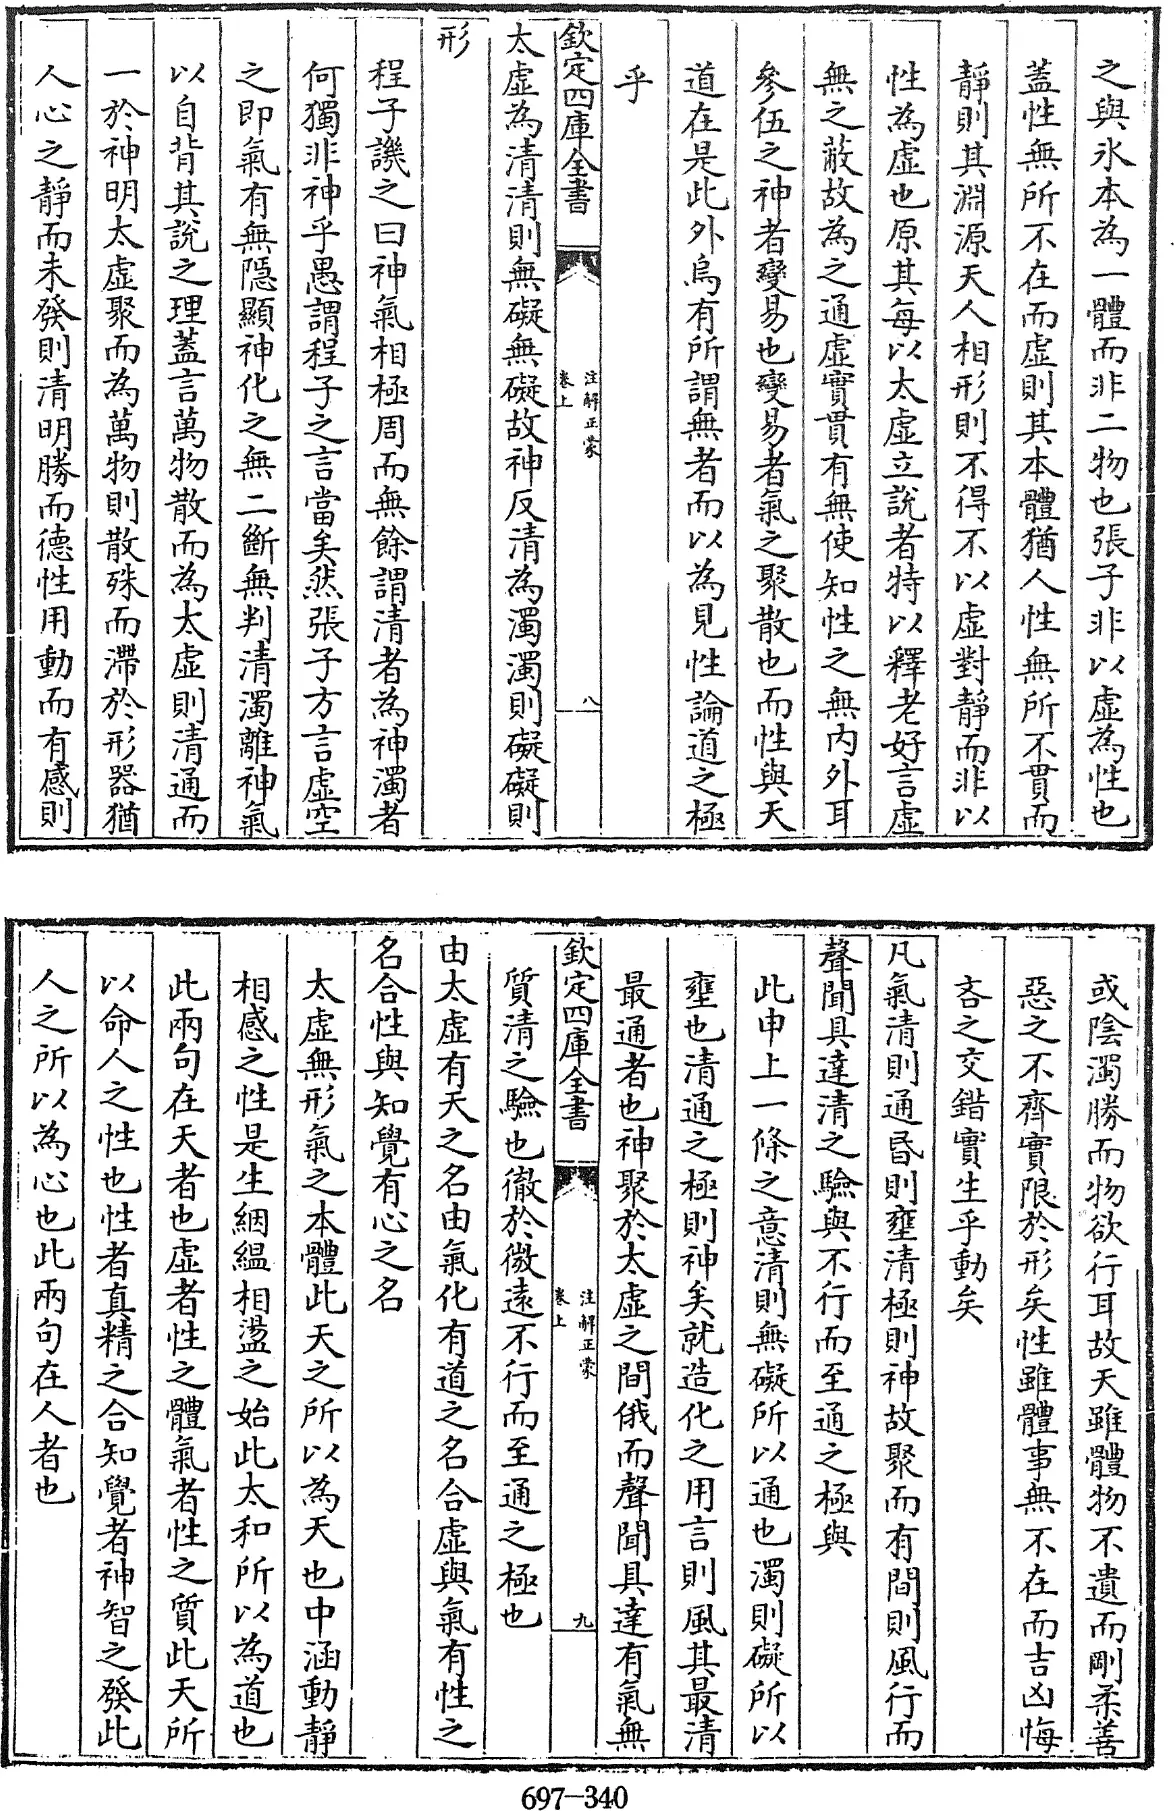 之與氷本為一體而非二物也張子非以虛為性也
蓋性無所不在而虛則其本體猶人性無所不貫而
靜則其淵源天人相形則不得不以虛對靜而非以
性為虛也原其每以太虛立說者特以釋老好言虛
無之蔽故為之通虛實貫有無使知性之無内外耳
參伍之神者變易也變易者氣之聚散也而性與天
道在是此外烏有所謂無者而以為見性論道之極
乎
欽定四庫全書
注解正蒙
卷上
八
太虛為清清則無礙無礙故神反清為濁濁則礙礙則
形
程子譏之曰神氣相極周而無餘謂清者為神濁者
何獨非神乎愚謂程子之言當矣然張子方言虛空
之即氣有無隱顯神化之無二斷無判清濁離神氣
以自背其說之理蓋言萬物散而為太虛則清通而
一於神明太虛聚而為萬物則散殊而滯於形器猶
人心之靜而未發則清明勝而德性用動而有感則
或陰濁勝而物欲行耳故天雖體物不遺而剛柔善
惡之不齊實限於形矣性雖體事無不在而吉凶悔
吝之交錯實生乎動矣
凡氣清則通昏則壅清極則神故聚而有間則風行而
聲聞具達清之驗與不行而至通之極與
此申上一條之意清則無礙所以通也濁則礙所以
壅也清通之極則神矣就造化之用言則風其最清
最通者也神聚於太虛之間俄而聲聞具達有氣無
欽定四庫全書
注解正蒙
卷上
九
質清之驗也徹於微遠不行而至通之極也
由太虛有天之名由氣化有道之名合虛與氣有性之
名合性與知覺有心之名
太虛無形氣之本體此天之所以為天也中涵動靜
相感之性是生絪縕相盪之始此太和所以為道也
此兩句在天者也虛者性之體氣者性之質此天所
以命人之性也性者真精之合知覺者神智之發此
人之所以為心也此兩句在人者也
697-340